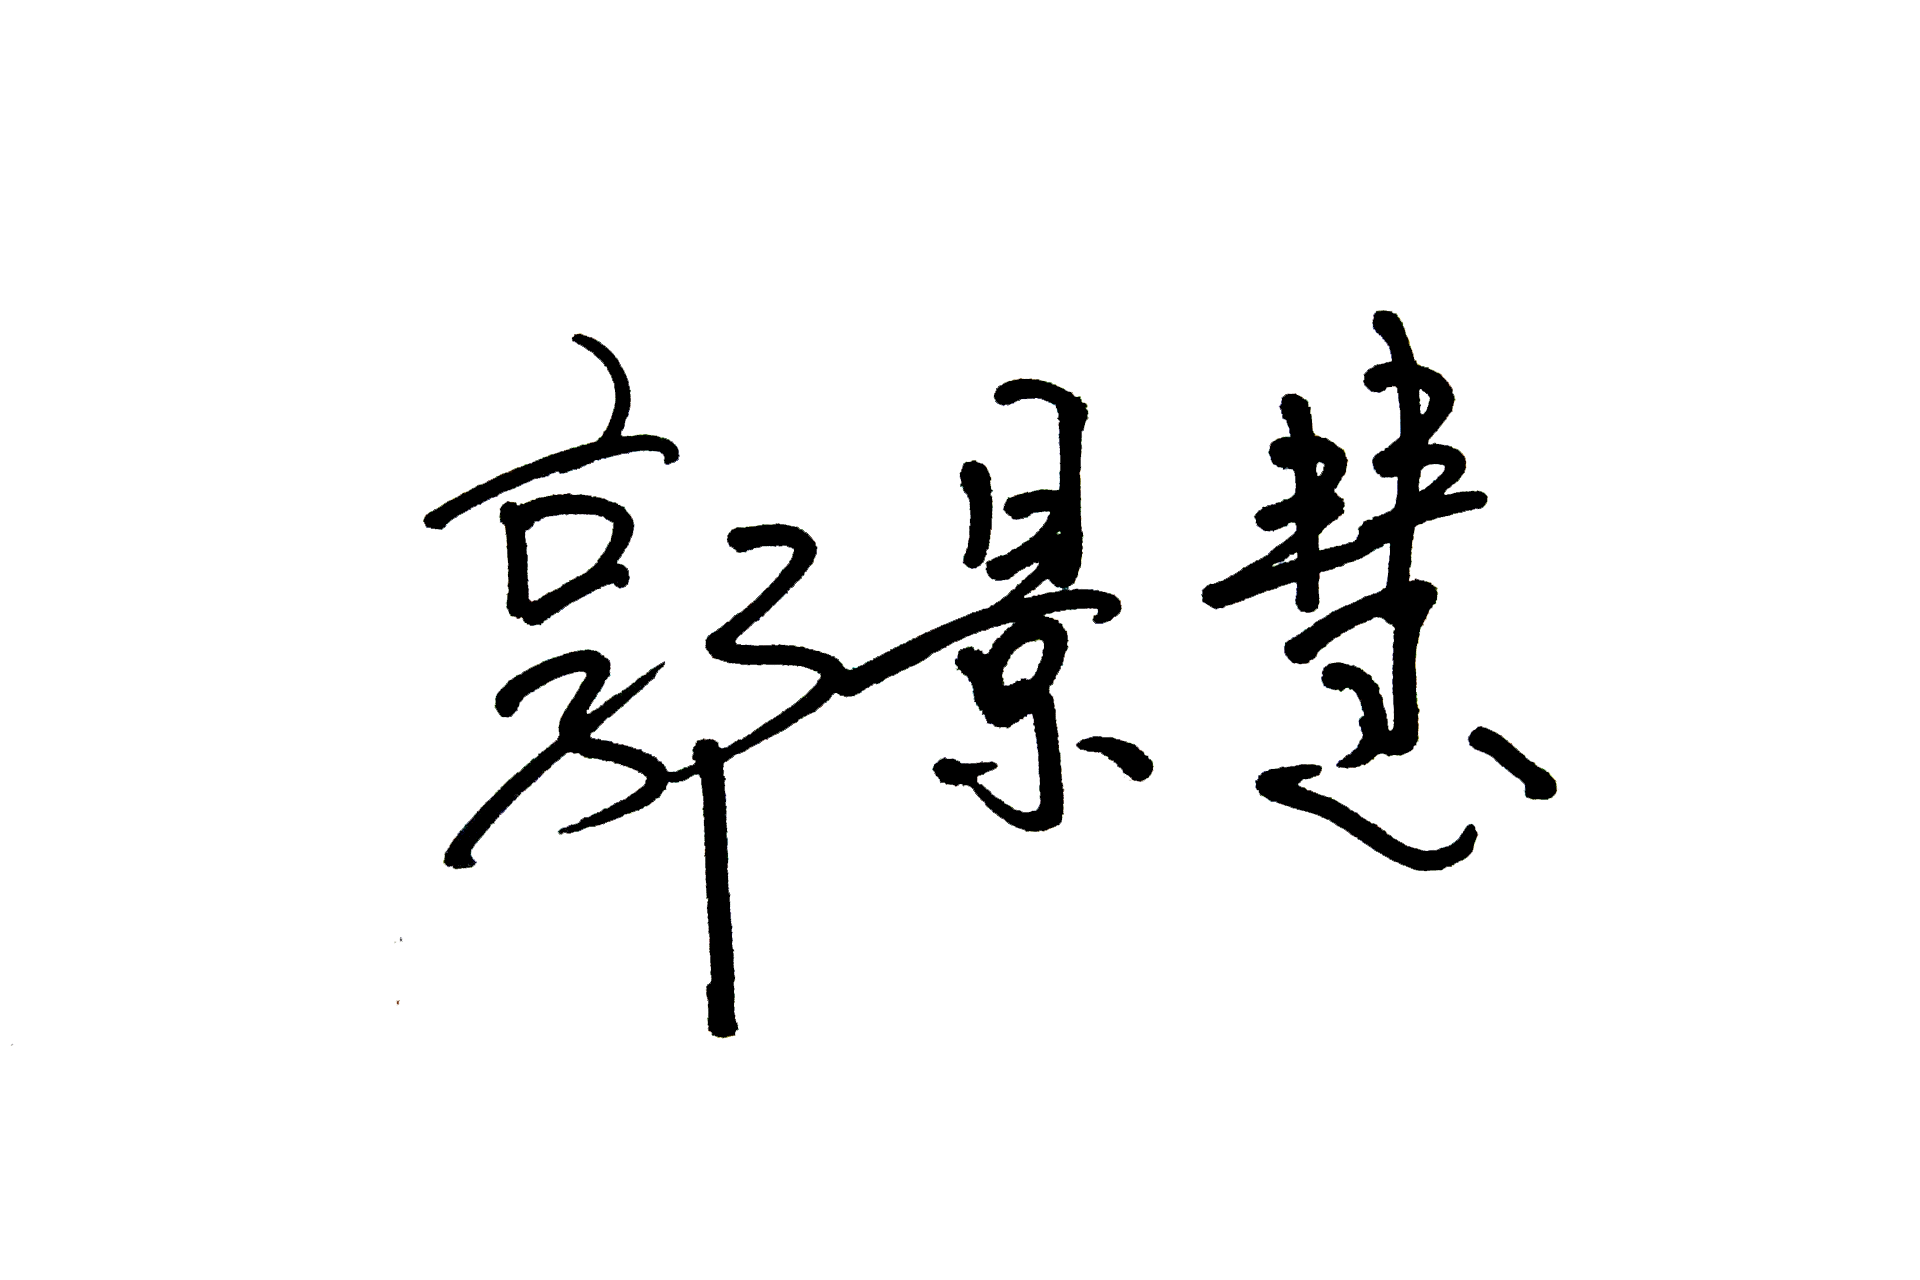 郭景慧